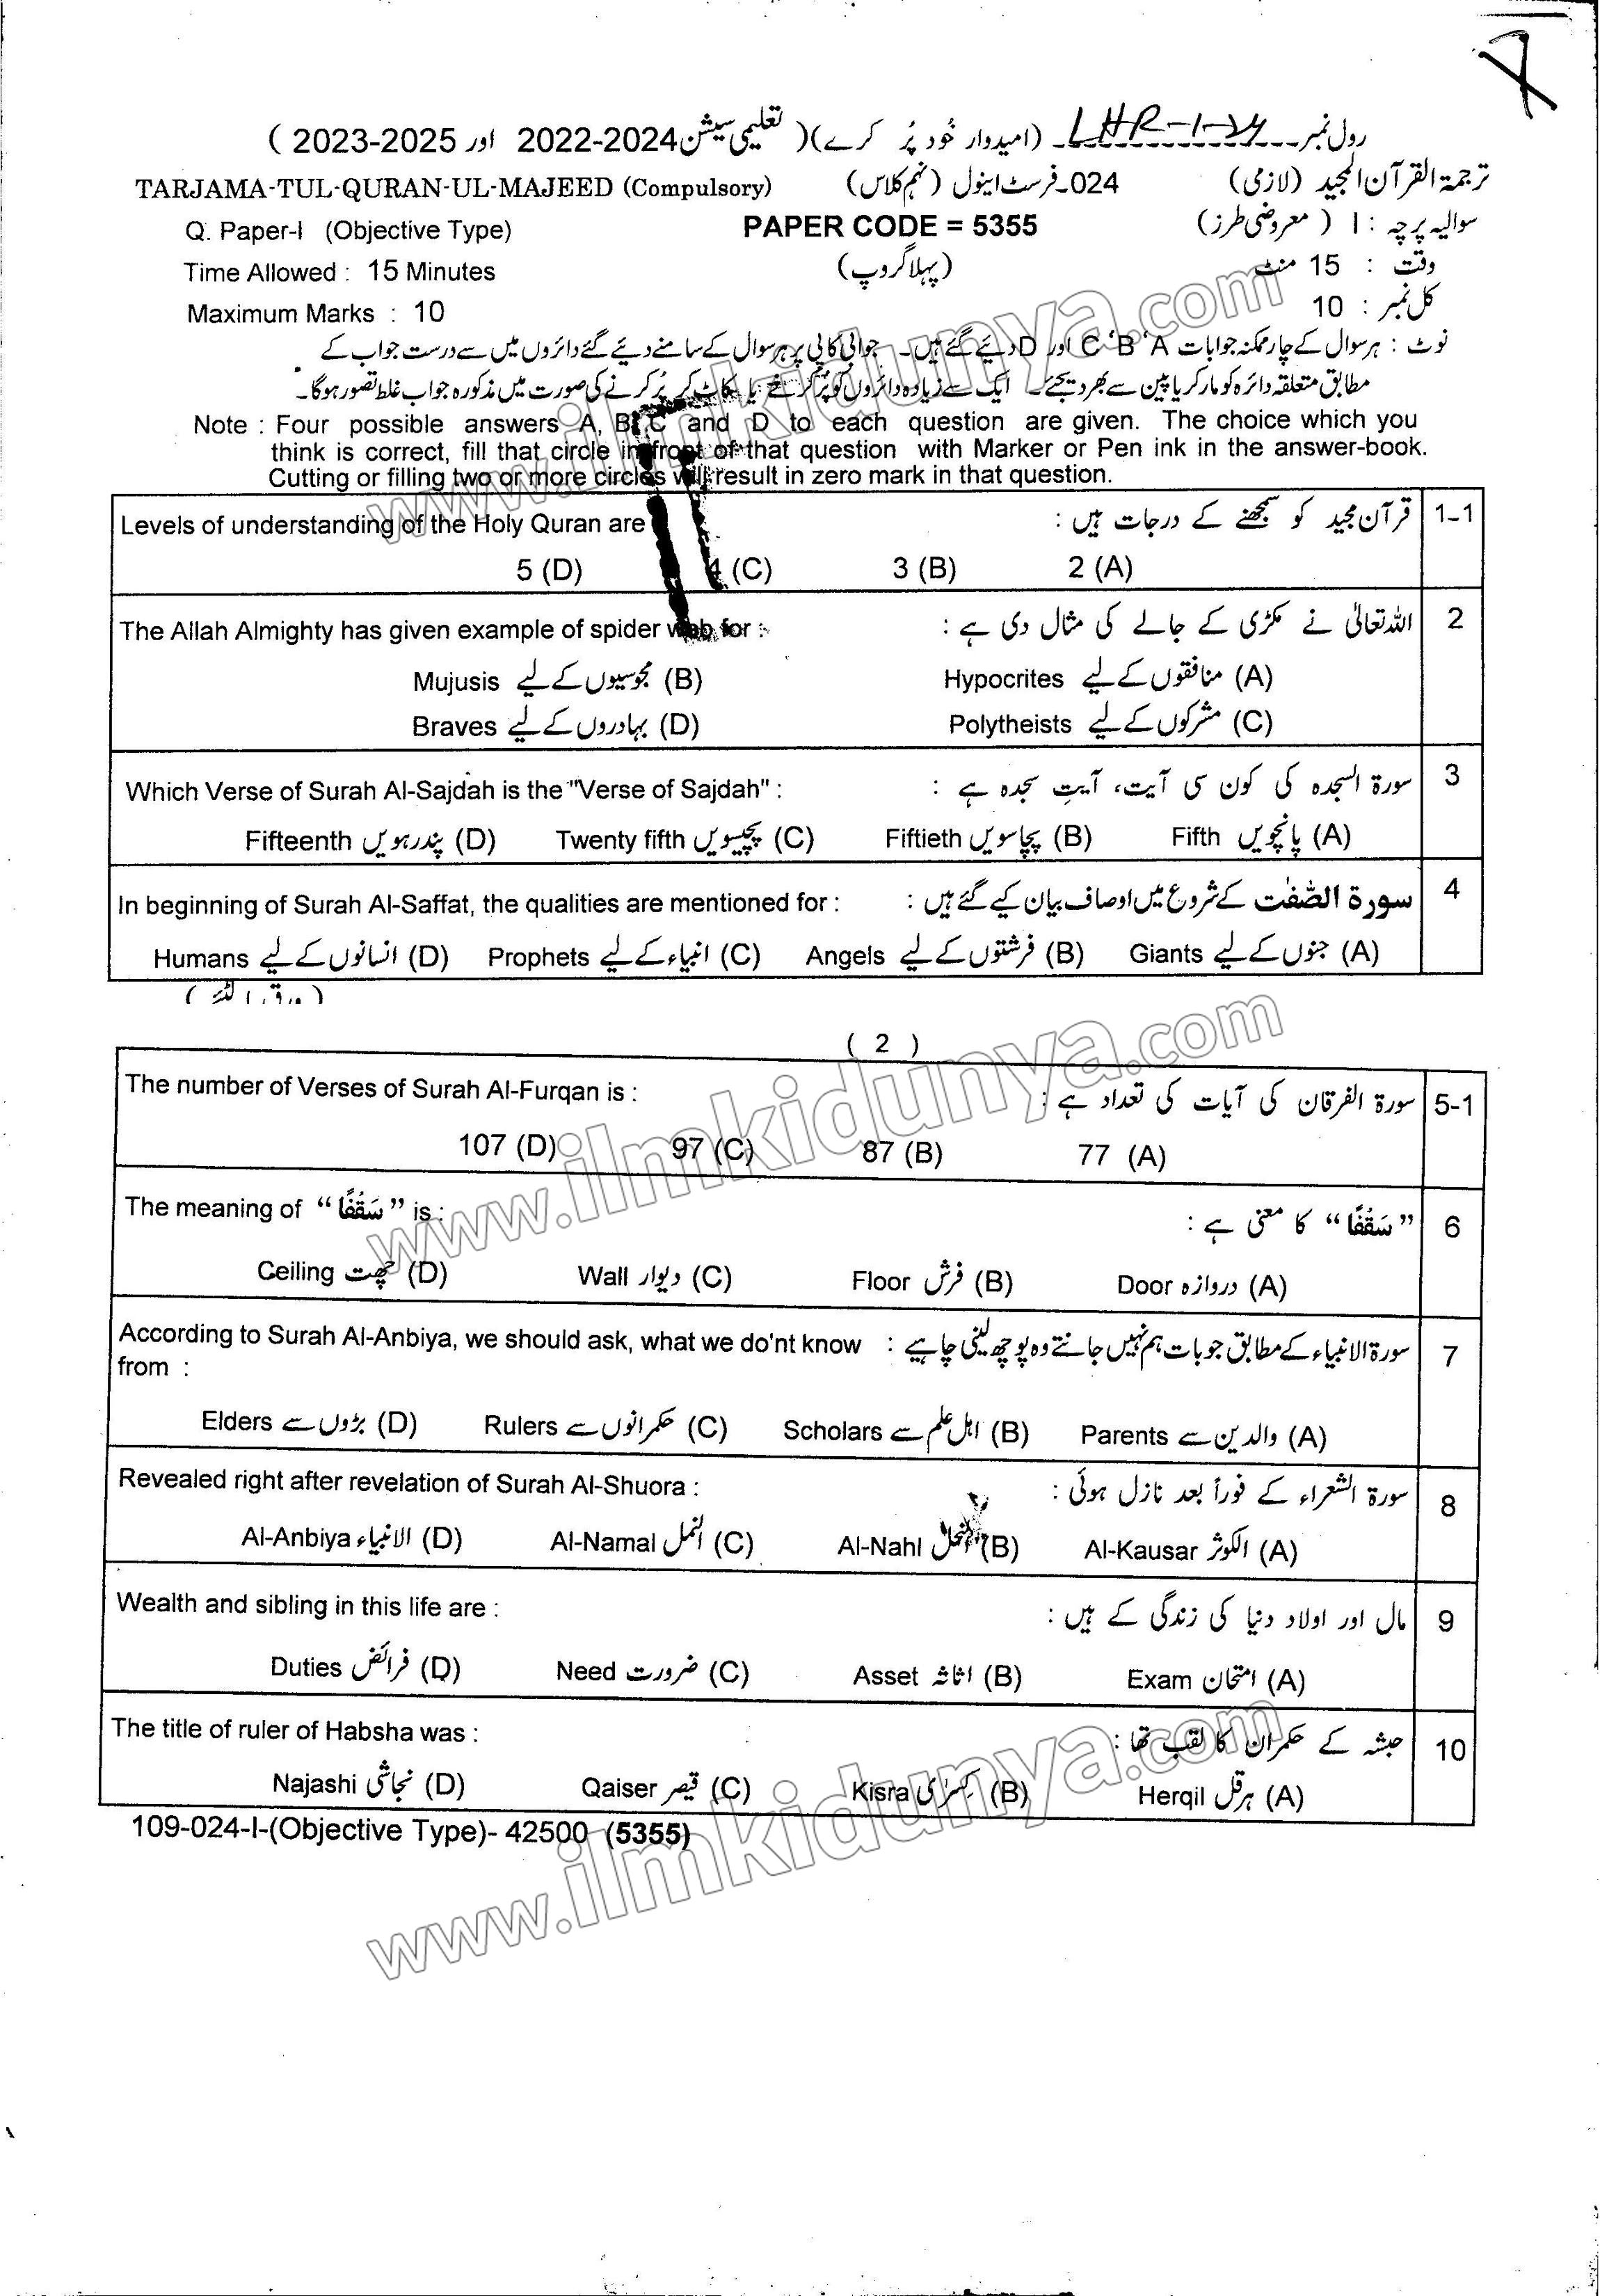 رول نمبر LHR-1-24 (امیدوار خُود پُر کرے) (تعلیمی سیشن 2024-2022 اور 2025-2023)
TARJAMA-TUL-QURAN-UL-MAJEED (Compulsory) 024-فرسٹ اینول (نہم کلاس) ترجمۃ القرآن المجید (لازمی)
Q. Paper-I (Objective Type) PAPER CODE = 5355 سوالیہ پرچہ : I (معروضی طرز)
Time Allowed : 15 Minutes (پہلا گروپ) وقت : 15 منٹ
Maximum Marks : 10 کل نمبر : 10
نوٹ : ہر سوال کے چار ممکنہ جوابات A ‘B ‘C اور D دیئے گئے ہیں۔ جوابی کاپی پر ہر سوال کے سامنے دیئے گئے دائروں میں سے درست جواب کے
مطابق متعلقہ دائرہ کو مارکر یا پین سے بھر دیجئے۔ ایک سے زیادہ دائروں کو پُر کرنے یا کاٹ کر پُر کرنے کی صورت میں مذکورہ جواب غلط تصور ہوگا۔
Note : Four possible answers A, B, C and D to each question are given. The choice which you
think is correct, fill that circle in front of that question with Marker or Pen ink in the answer-book.
Cutting or filling two or more circles will result in zero mark in that question.
Levels of understanding of the Holy Quran are قرآن مجید کو سمجھنے کے درجات ہیں : 1-1
5 (D) 4 (C) 3 (B) 2 (A)
The Allah Almighty has given example of spider web for : اللہ تعالیٰ نے مکڑی کے جالے کی مثال دی ہے : 2
Mujusis مجوسیوں کے لیے (B) Hypocrites منافقوں کے لیے (A)
Braves بہادروں کے لیے (D) Polytheists مشرکوں کے لیے (C)
Which Verse of Surah Al-Sajdah is the "Verse of Sajdah" : سورۃ السجدہ کی کون سی آیت، آیتِ سجدہ ہے : 3
Fifteenth پندرہویں (D) Twenty fifth پچیسویں (C) Fiftieth پچاسویں (B) Fifth پانچویں (A)
In beginning of Surah Al-Saffat, the qualities are mentioned for : سورۃ الصّٰفّٰت کے شروع میں اوصاف بیان کیے گئے ہیں : 4
Humans انسانوں کے لیے (D) Prophets انبیاء کے لیے (C) Angels فرشتوں کے لیے (B) Giants جنوں کے لیے (A)
(ورق الٹئے)
( 2 )
The number of Verses of Surah Al-Furqan is : سورۃ الفرقان کی آیات کی تعداد ہے : 5-1
107 (D) 97 (C) 87 (B) 77 (A)
The meaning of “سَقْفًا” is : “سَقْفًا” کا معنی ہے : 6
Ceiling چھت (D) Wall دیوار (C) Floor فرش (B) Door دروازہ (A)
According to Surah Al-Anbiya, we should ask, what we do'nt know سورۃ الانبیاء کے مطابق جو بات ہم نہیں جانتے وہ پوچھ لینی چاہیے : 7
from :
Elders بڑوں سے (D) Rulers حکمرانوں سے (C) Scholars اہل علم سے (B) Parents والدین سے (A)
Revealed right after revelation of Surah Al-Shuora : سورۃ الشعراء کے فوراً بعد نازل ہوئی : 8
Al-Anbiya الانبیاء (D) Al-Namal النمل (C) Al-Nahl النحل (B) Al-Kausar الکوثر (A)
Wealth and sibling in this life are : مال اور اولاد دنیا کی زندگی کے ہیں : 9
Duties فرائض (D) Need ضرورت (C) Asset اثاثہ (B) Exam امتحان (A)
The title of ruler of Habsha was : حبشہ کے حکمران کا لقب تھا : 10
Najashi نجاشی (D) Qaiser قیصر (C) Kisra کِسرٰی (B) Herqil ہرقل (A)
109-024-I-(Objective Type)- 42500 (5355)
www.ilmkidunya.com
www.ilmkidunya.com
www.ilmkidunya.com